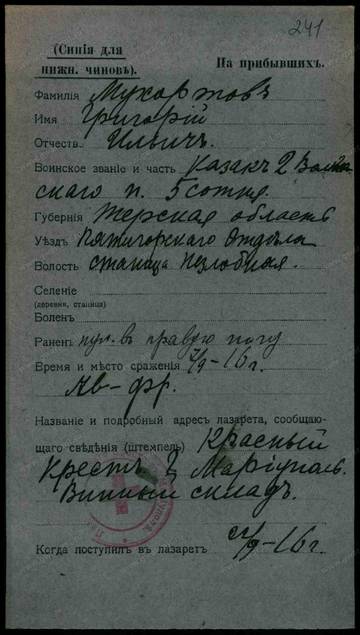 241
(Синія для
нижн. чиновъ).
На прибывшихъ.
Фамилія Мухортовъ
Имя Григорій
Отчеств. Ильичъ.
Воинское званіе и часть казакъ 2 Волж
скаго п. 5 сотня.
Губернія Терская область
Уѣздъ Пятигорскаго Отдѣла
Волость станица Незлобная.
Селеніе
(деревня, станица)
Боленъ
Раненъ пул. въ правую ногу
Время и мѣсто сраженія /9-16 г.
Ав-фр.
Названіе и подробный адресъ лазарета, сообщаю-
щаго свѣдѣнія (штемпель) Красный
Крестъ Маріуполь.
Винный складъ.
Когда поступилъ въ лазаретъ /9-16 г.